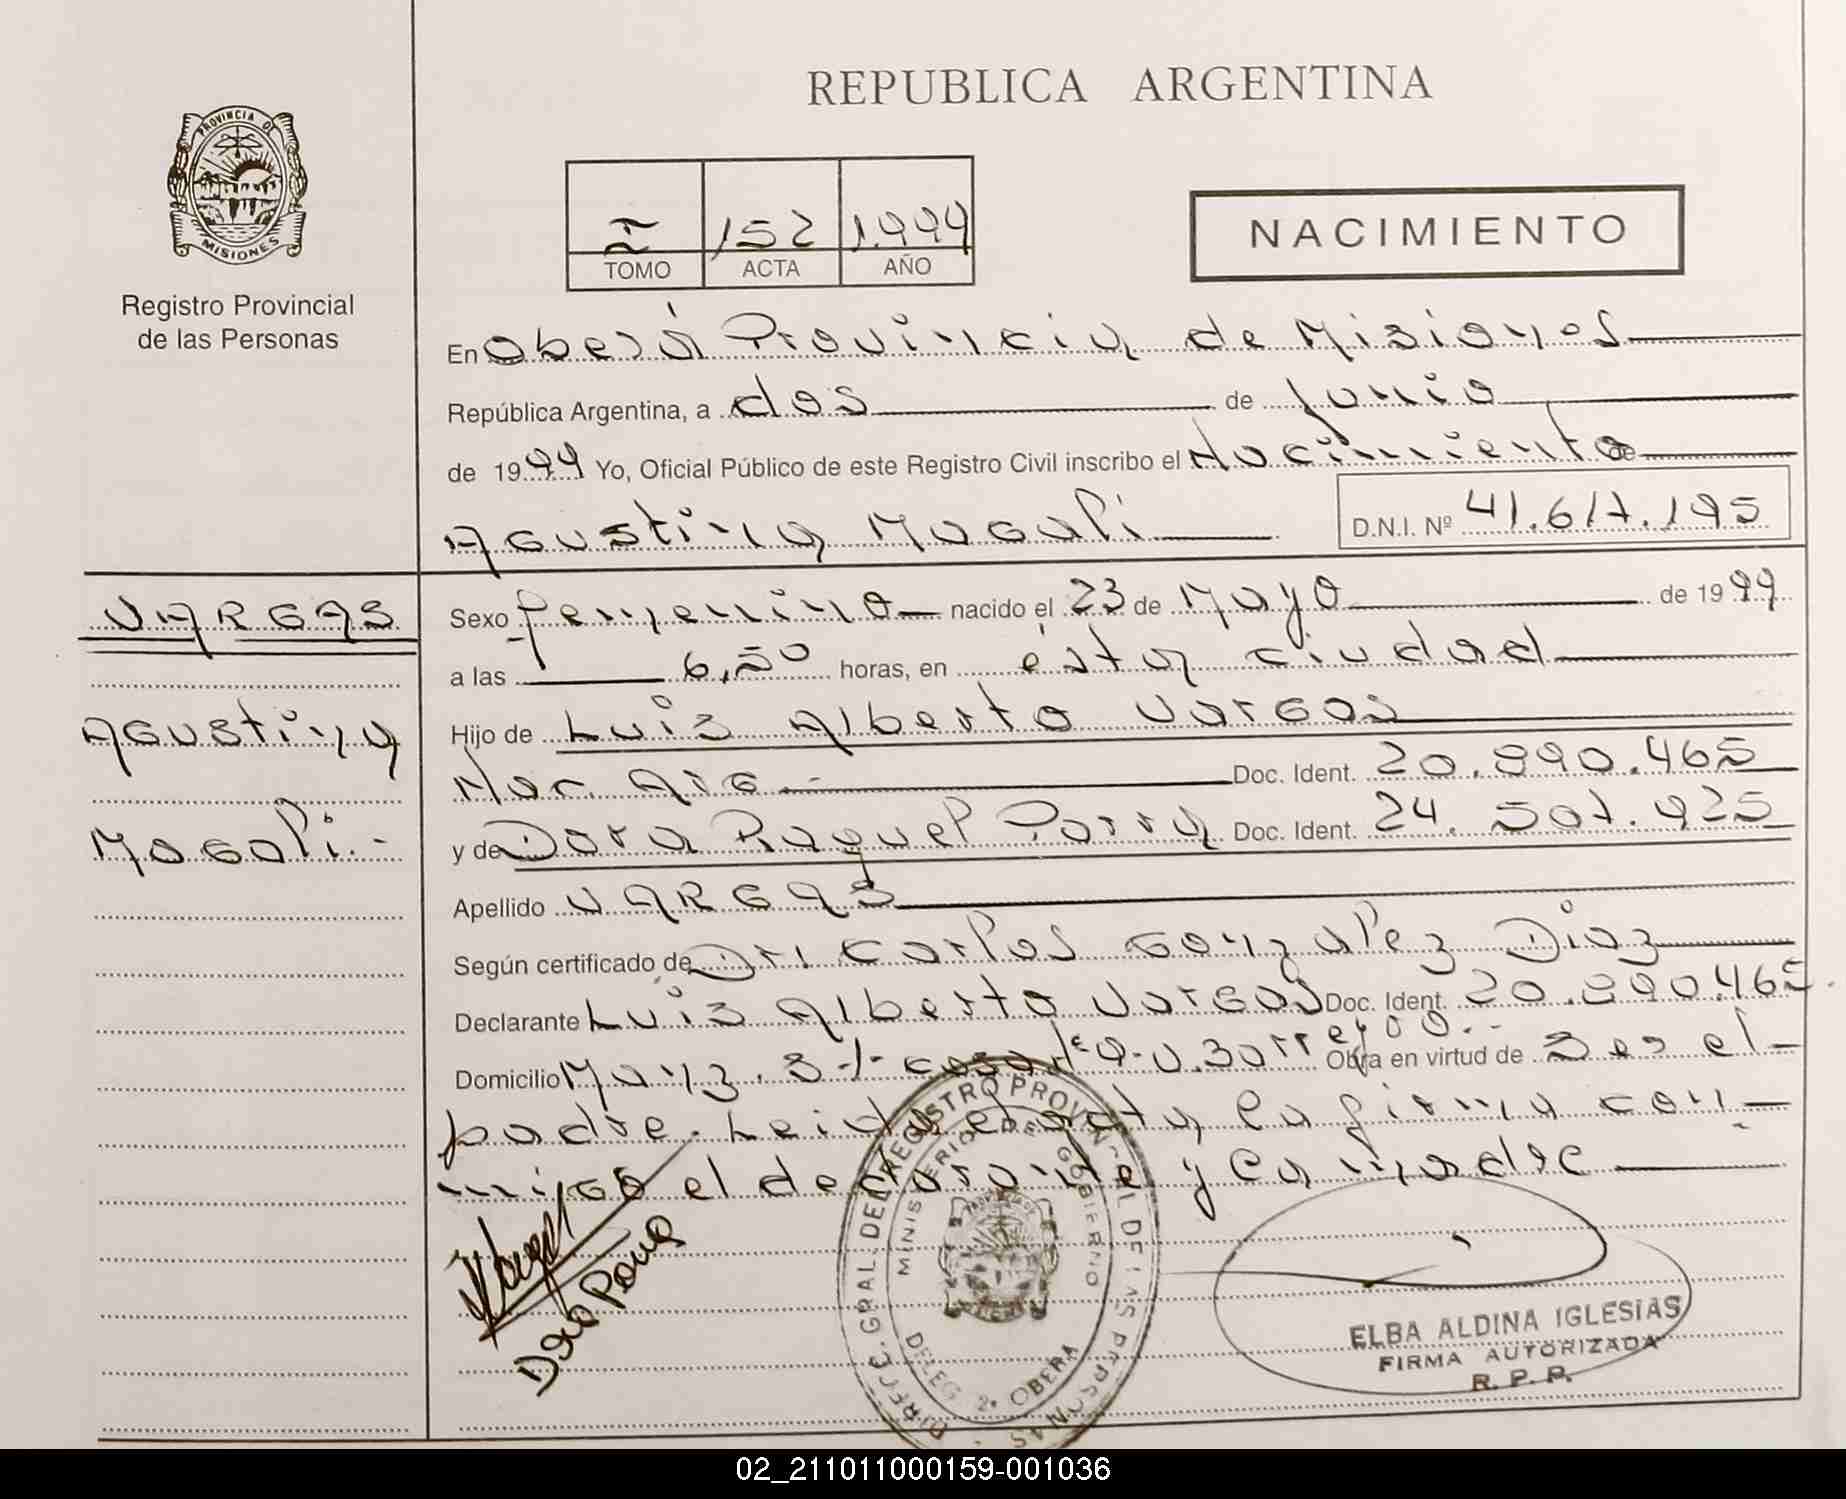 REPUBLICA ARGENTINA
PROVINCIA DE
MISIONES
Registro Provincial
de las Personas
I 152 1.999
TOMO ACTA AÑO
NACIMIENTO
En Oberá Provincia de Misiones
República Argentina, a dos de Junio
de 1999 Yo, Oficial Público de este Registro Civil inscribo el Nacimiento de
Agustina Magali D.N.I. Nº 41.617.195
VARGAS
Agustina
Magali.-
Sexo femenino nacido el 23 de Mayo de 1999
a las 6,50 horas, en ésta ciudad
Hijo de Luis Alberto Vargas
Nac. Arg Doc. Ident. 20.890.465
y de Dora Raquel Parra Doc. Ident. 24.507.925
Apellido VARGAS
Según certificado de Dr. Carlos Gonzalez Diaz
Declarante Luis Alberto Vargas Doc. Ident. 20.890.465.
Domicilio Manz. casa Obra en virtud de Ser el
padre. Leida el acta la firma con-
migo el declarante y la madre
DIREC. GRAL. DEL REGISTRO PROVINCIAL DE LAS PERSONAS
MINISTERIO DE GOBIERNO
DELEG. 2ª OBERA
Dora Parra
ELBA ALDINA IGLESIAS
FIRMA AUTORIZADA
R. P. P.
02_211011000159-001036